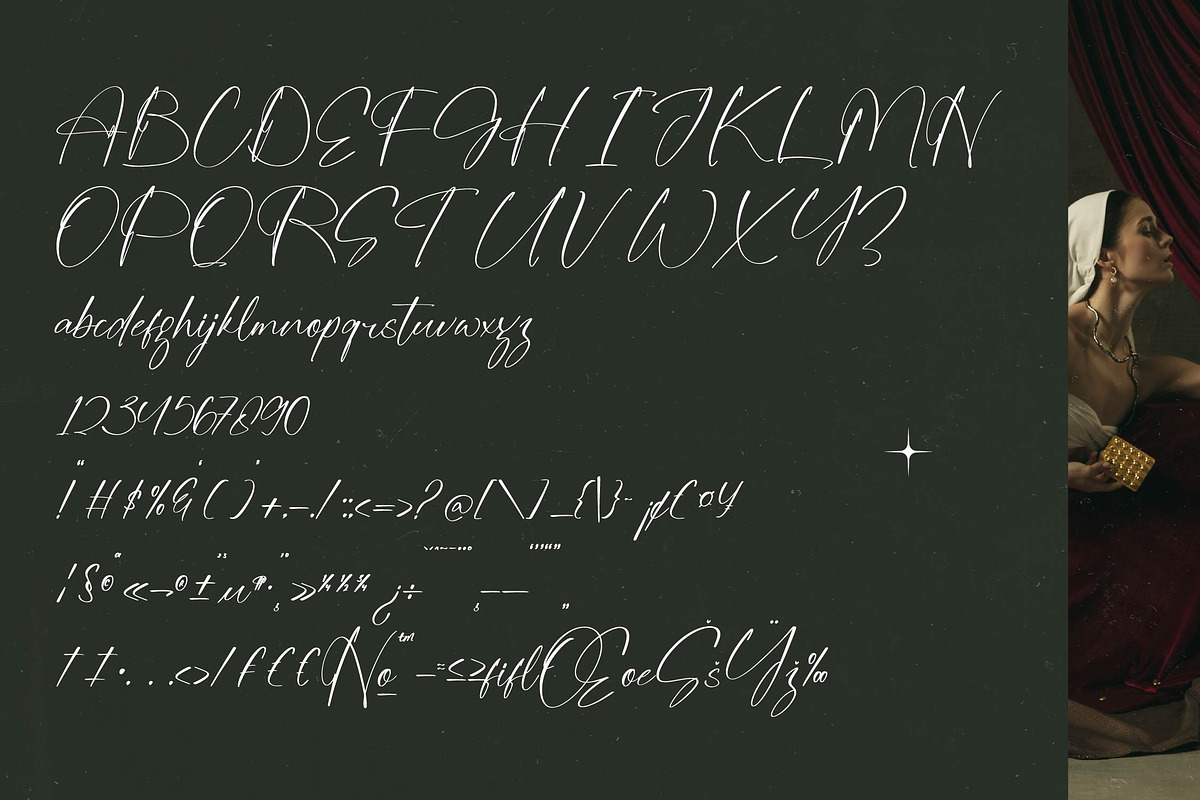 ABCDEFGHIJKLMN
OPQRSTUVWXYZ
abcdefghijklmnopqrstuvwxyz
1234567890
!"#$%&'()*+,-./:;<=>?@[\]_{|}~¡¢£¤¥
¦§©«¬®±µ¶·¸»¼½¾¿÷
†‡•...‹›⁄ƒ€£№™−≈≤≥fiflŒœŠšŸž‰